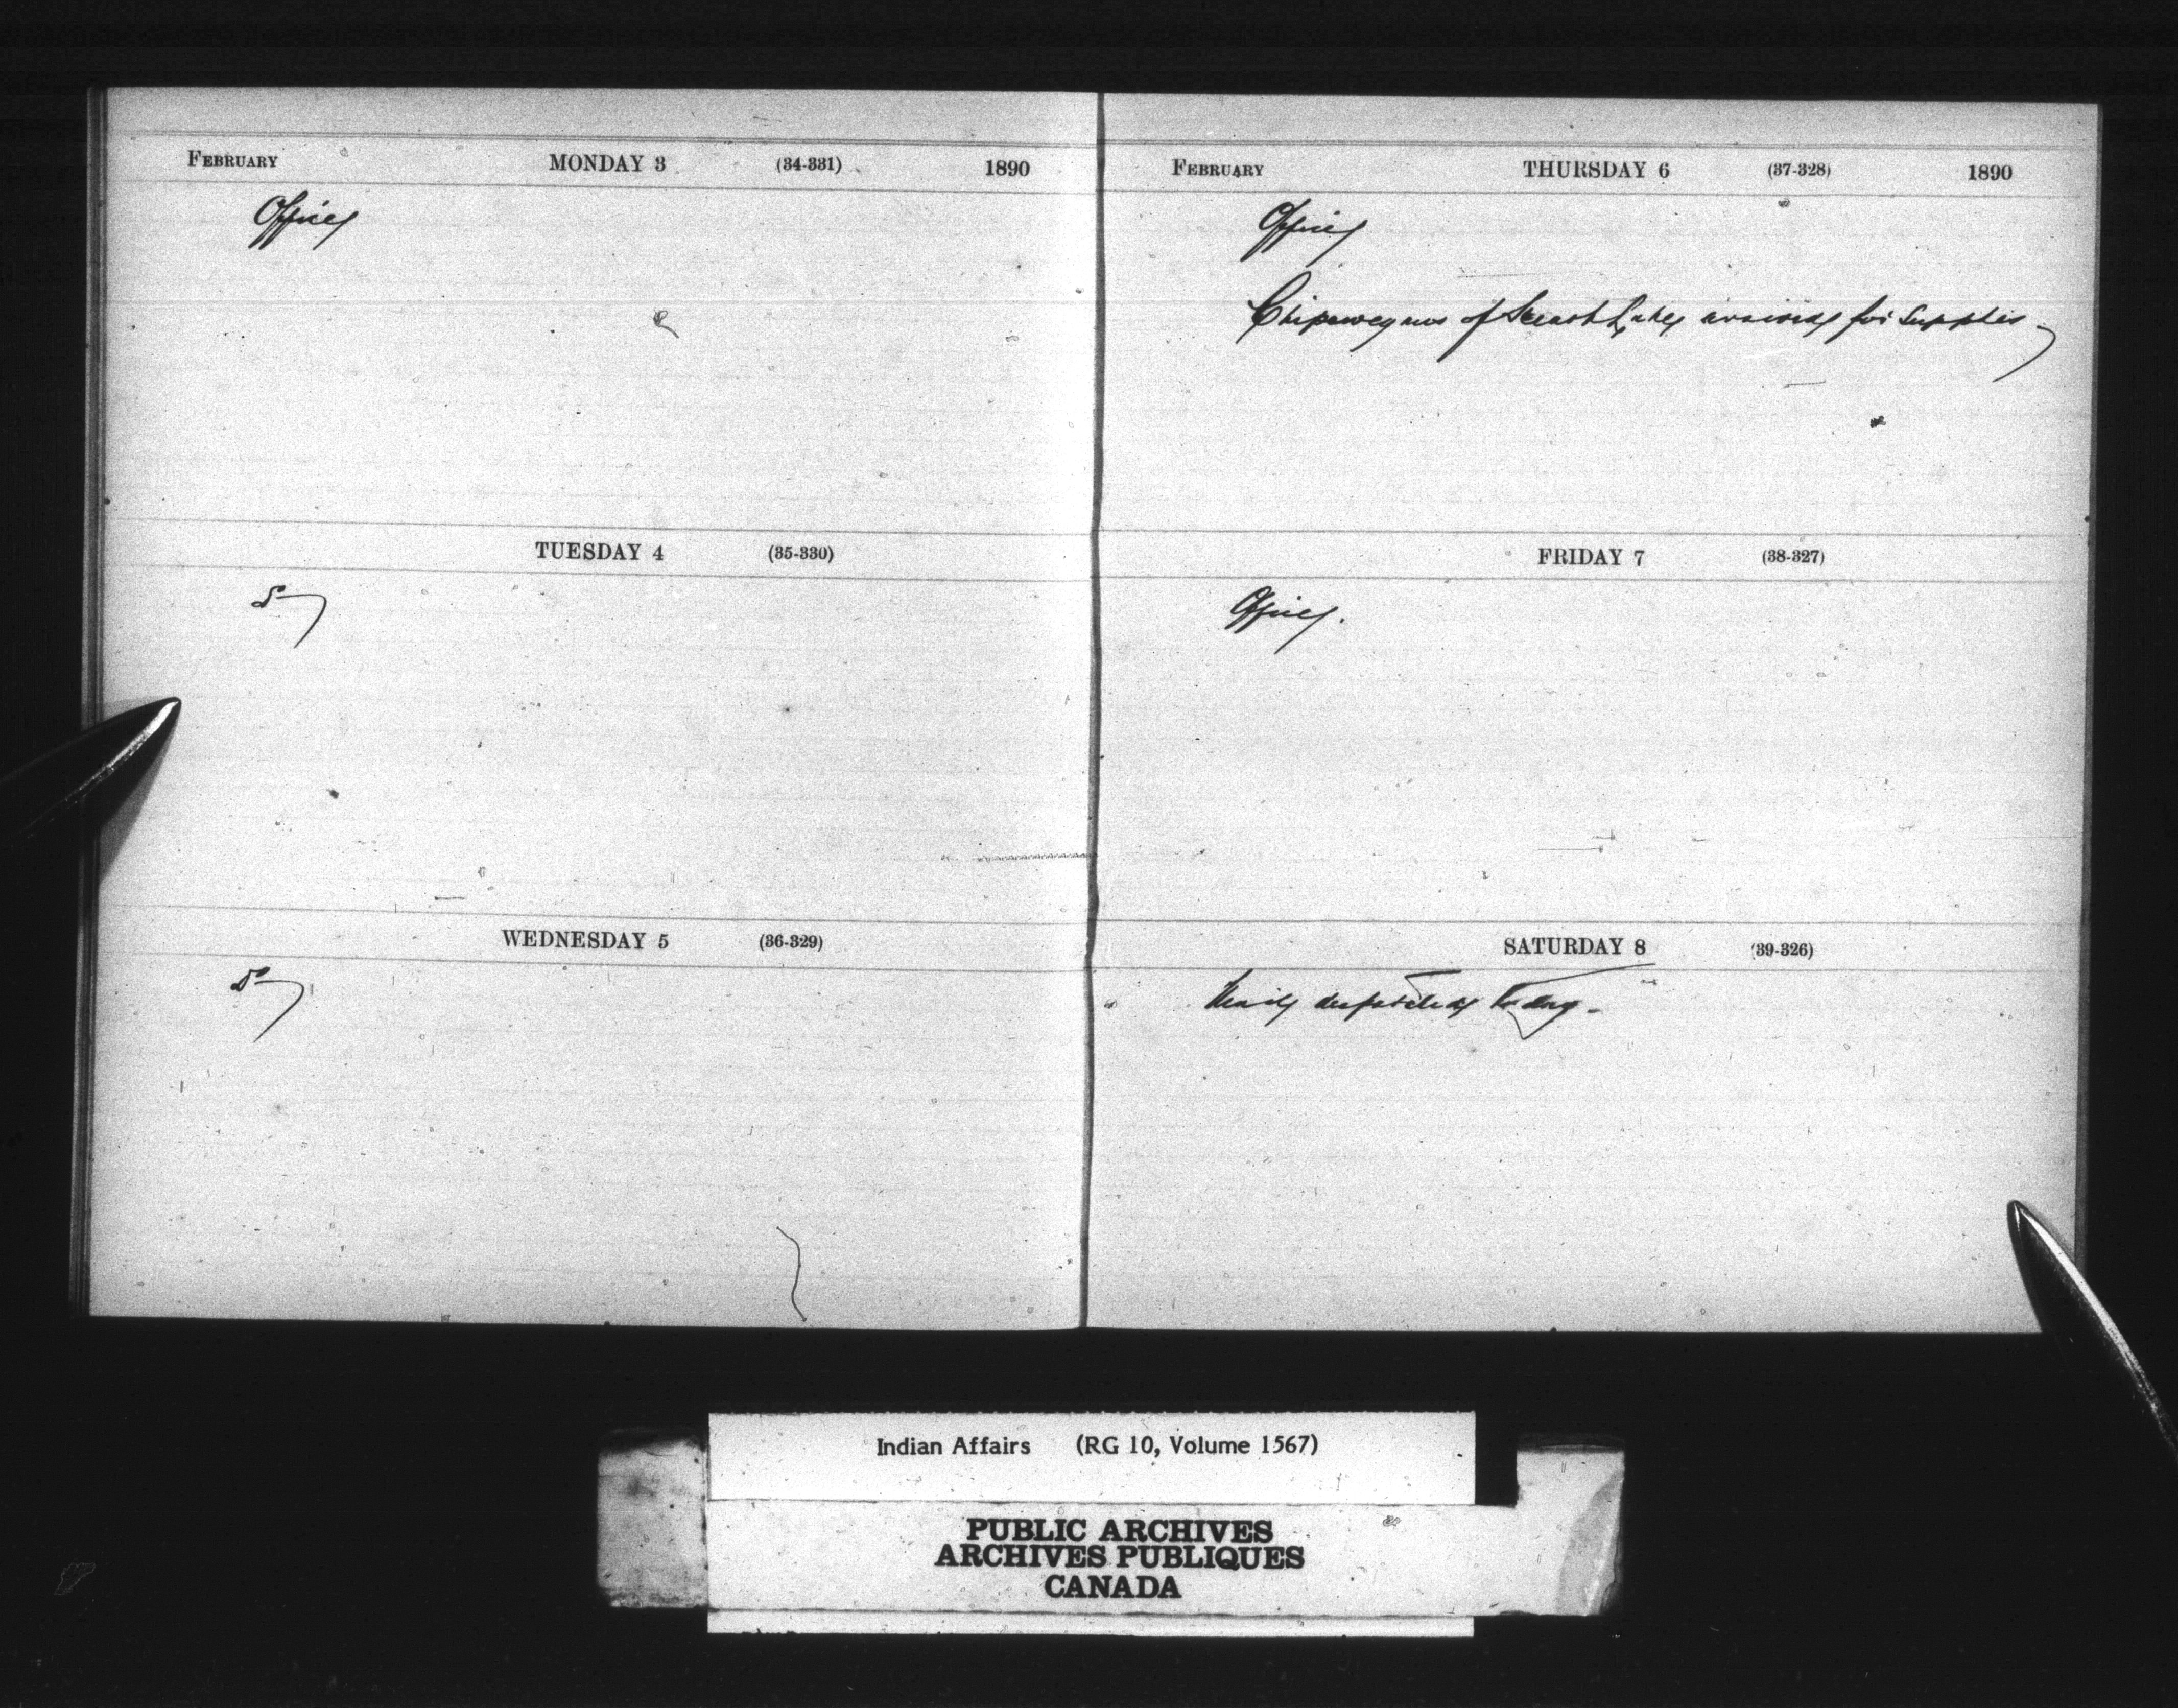 FEBRUARY MONDAY 3 (34-331) 1890
Office
TUESDAY 4 (35-330)
Do
WEDNESDAY 5 (36-329)
Do
FEBRUARY THURSDAY 6 (37-328) 1890
Office
Chipewyans of Lake arrived for supplies
FRIDAY 7 (38-327)
Office.
SATURDAY 8 (39-326)
Mail despatched today.
Indian Affairs (RG 10, Volume 1567)
PUBLIC ARCHIVES
ARCHIVES PUBLIQUES
CANADA